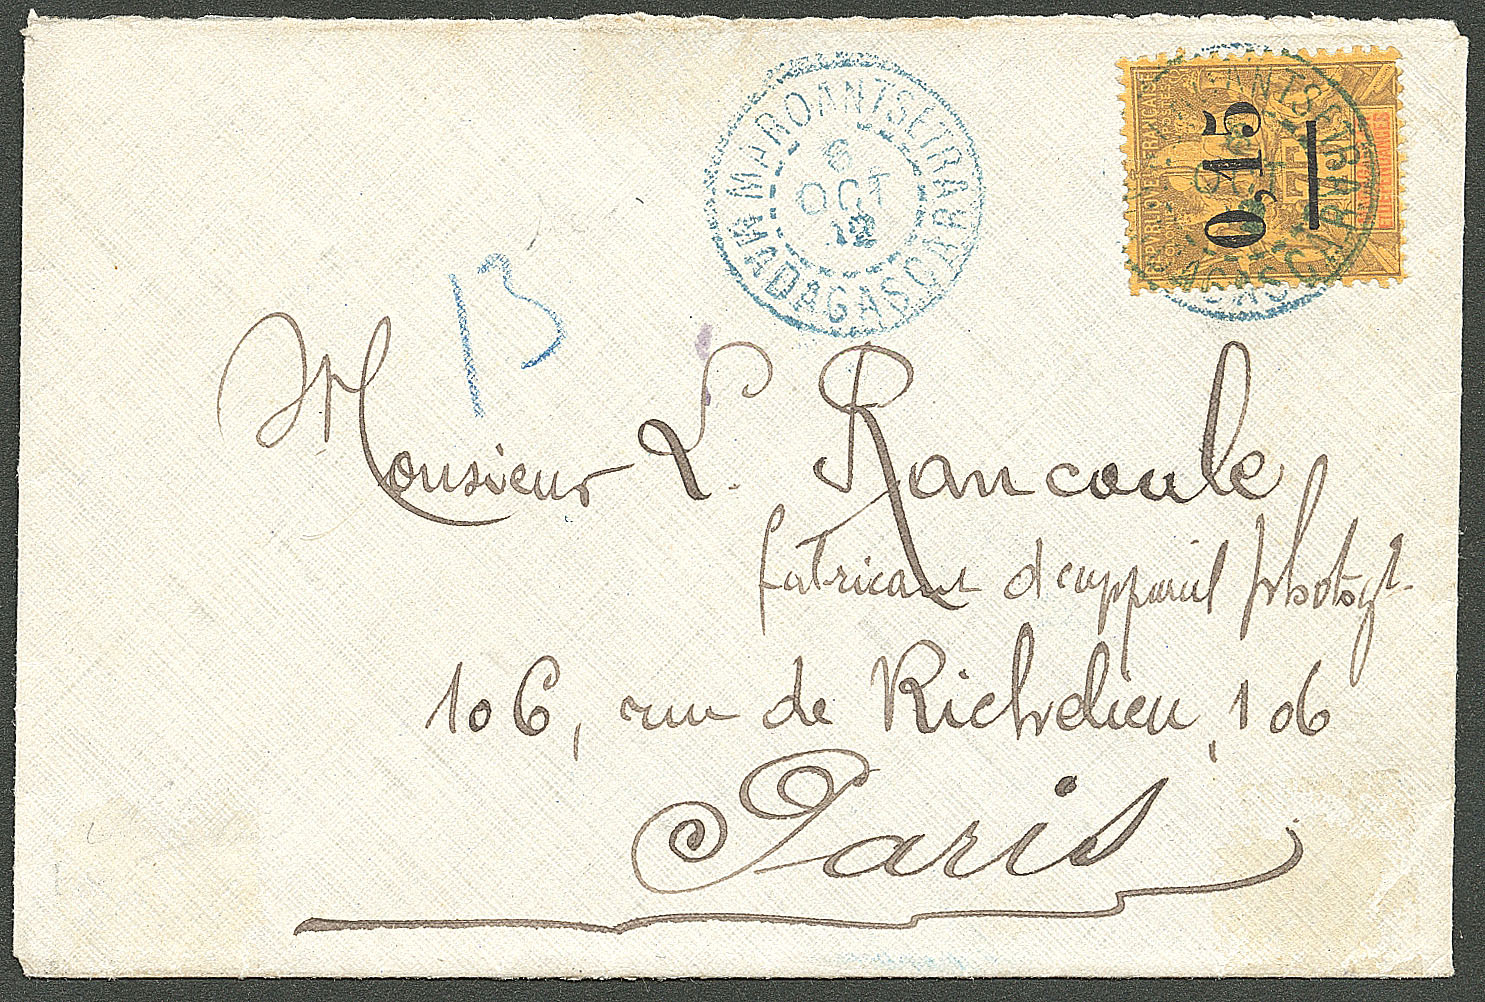 MAROANTSETRA
6
OCT
12
MADAGASCAR
RÉPUBLIQUE FRANÇAISE
0,15
75
13
Monsieur L. Rancoule
fabricant d'appareil photogr.
106, rue de Richelieu, 106
Paris